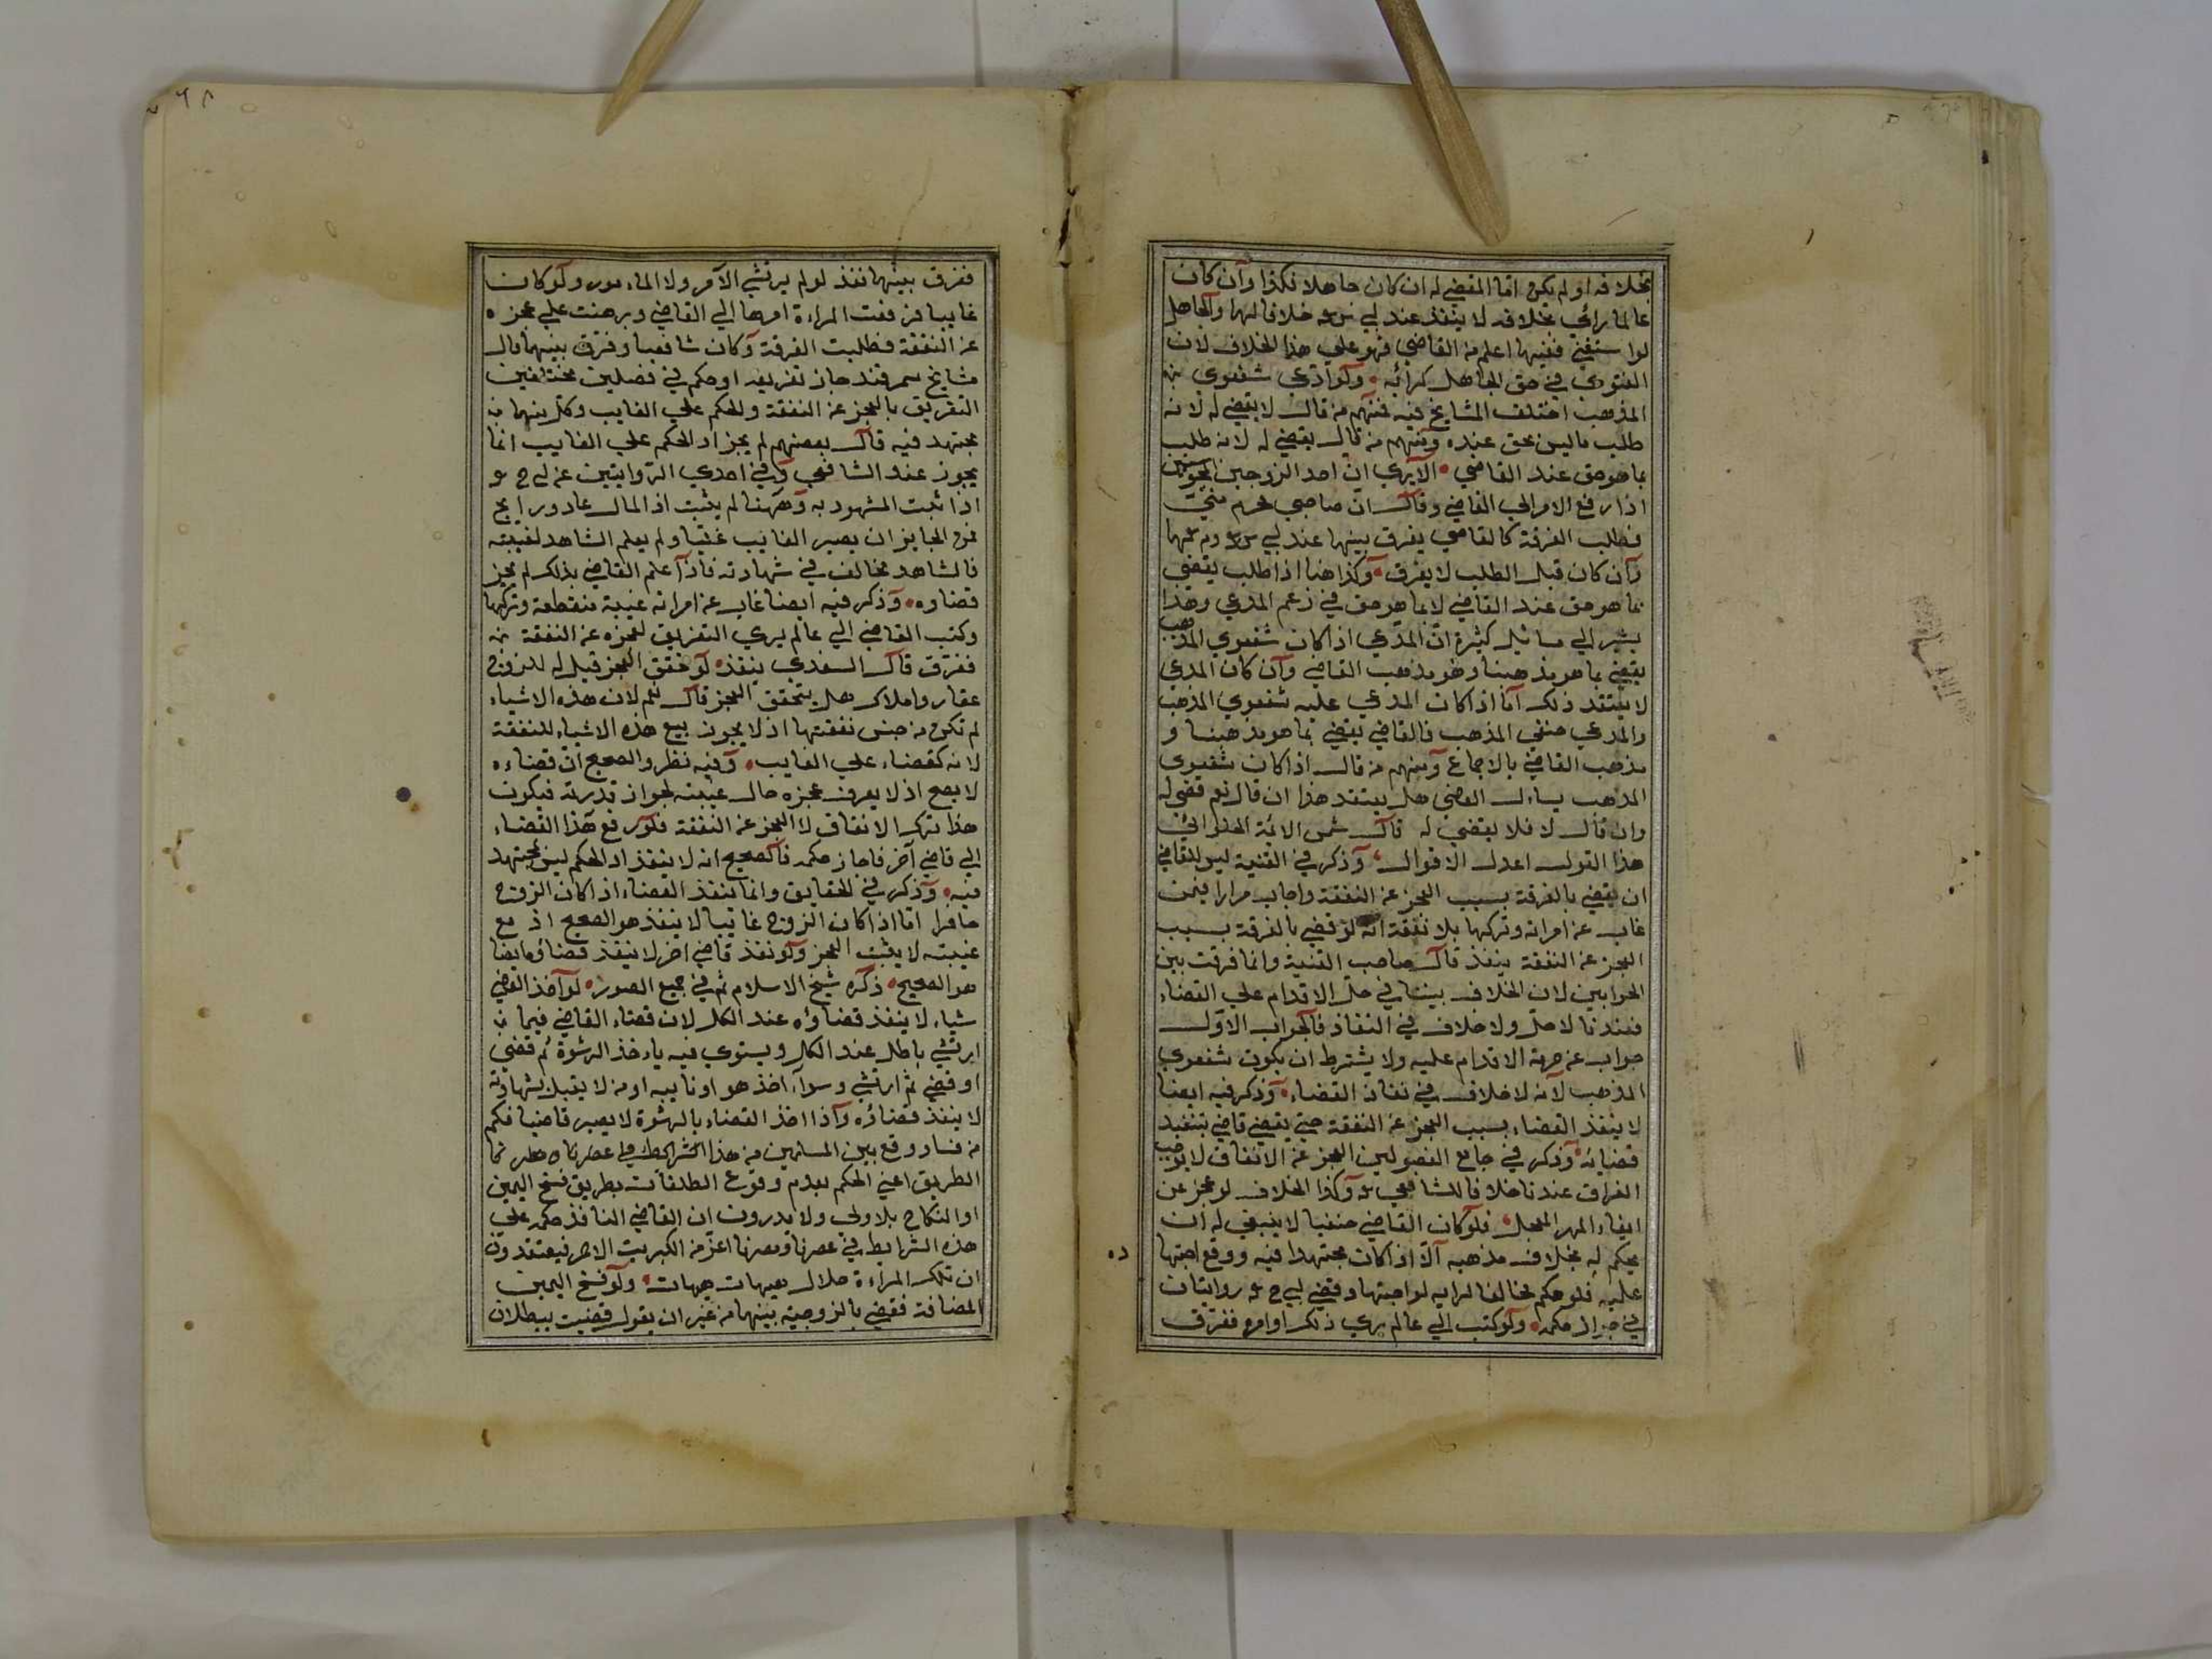 بخلافه او لم يكن امّا المقضي له ان كان جاهلا فكذا وان كان
عالما رائي بخلافه لا ينفذ عند ابي س رح خلافا لهما والجاهل
لو استفتي فقيها اعلم من القاضي فهو علي هذا الخلاف لان
الفتوي في حق الجاهل كرائه ولو ادّعي شفعوي من
المذهب اختلف المشايخ فيه فمنهم من قال لا يقضي له لانه
طلب ماليس بحق عنده ومنهم من قال يقضي له لانه طلب
بما هو حق عند القاضي الا يري انّ احد الزوجين المجوسيين
اذا رفع الامر الي القاضي وقال انّ صاحبي محرم منّي
فطلب الفرقة كالقاضي يفرق بينهما عند ابي س وم رحهما
وان كان قبل الطلب لا يفرق وكذا هنا اذا طلب يقضي
بما هو حق عند القاضي لا بما هو حق في زعم المدعي وهذا
يشير الي مسائل كثيرة انّ المدّعي اذا كان شفعوي المذهب
يقضي بما هو مذهبنا وهو مذهب القاضي وان كان المدعي
لا يعتقد ذلك امّا اذا كان المدعي عليه شفعوي المذهب
والمدعي حنفي المذهب فالقاضي يقضي بما هو مذهبنا و
مذهب القاضي بالاجماع ومنهم من قال اذا كان شفعوي
المذهب يساءل القاضي هل يعتقد هذا ان قال نعم قضي له
وان قال لا فلا يقضي له قال شمس الائمة الحلوائي
هذا القول اعدل الاقوال وذكر في القنية ليس للقاضي
ان يقضي بالفرقة بسبب العجز عن النفقة واجاب مرارا فيمن
غاب عن امراته وتركها بلا نفقة انه لو قضي بالفرقة بسبب
العجز عن النفقة ينفذ قال صاحب القنية وانما فرقت بين
الجوابين لان الخلاف بيننا في حلّ الاقدام علي القضاء
فعندنا لا حلّ ولا خلاف في النفاذ فالجواب الاوّل
جواب عن حرمة الاقدام عليه ولا يشترط ان يكون شفعوي
المذهب لانه لا خلاف في نفاذ القضاء وذكر فيه ايضا
لا ينفذ القضاء بسبب العجز عن النفقة حتي يقضي قاضي بتنفيذ
قضائه وذكر في جامع الفصولين العجز عن الانفاق لا يوجب
الفراق عندنا خلافا للشافعي رح وكذا الخلاف لو عجز عن
ايفاء المهر المعجل فلو كان القاضي حنفيا لا ينبغي له ان
يحكم له بخلاف مذهبه الّا اذا كان مجتهدا فيه ووقع اجتهاده
عليه فلو حكم مخالفا لرايه لو اجتهاد وقضي لابي ح رح روايتان
في جواز حكمه ولو كتب الي عالم يري ذلك او امره ففرّق
ففرق بينهما نفذ لو لم يرتشي الآمر ولا الماءمور ولو كان
غايبا فرفعت المراءة امرها الي القاضي وبرهنت علي عجزه
عن النفقة فطلبت الفرقة وكان شافعيا وفرّق بينهما قال
مشايخ سمرقند جاز تفريقه اذ حكم في فصلين مختلفين
التفريق بالعجز عن النفقة والحكم علي الغايب وكلّ منهما من
مجتهد فيه قال بعضهم لم يجز اذ الحكم علي الغايب انما
يجوز عند الشافعي وفي احدي الروايتين عن ابي ح رح
اذا ثبت المشهود به وههنا لم يثبت اذ المال غاد ورايح
فمن الجايز ان يصير الغايب غنيا ولم يعلم الشاهد لغيبته
فالشاهد مخالف في شهادته فاذا علم القاضي بذلك لم يجز
قضاوه وذكر فيه ايضا غاب عن امراته غيبة منقطعة وتركها
وكتب القاضي الي عالم يري التفريق لعجزه عن النفقة من
ففرّق قال السغدي ينفذ لو تحقق العجز قيل له للزوج
عقار واملاك هل يتحقق العجز قال نعم لان هذه الاشياء
لم تكن من جنس نفقتها اذ لا يجوز بيع هذه الاشياء للنفقة
لانه كقضاء علي الغايب وفيه نظر والصحيح انّ قضاءه
لا يصح اذ لا يعرف عجزه حال غيبته لجواز قدرته فيكون
هذا ترك الانفاق لا العجز عن النفقة فلو رفع هذا القضاء
الي قاضي آخر فاجاز حكمه فالصحيح انه لا ينفذ اذ الحكم ليس بمجتهد
فيه وذكر في الحقايق وانما ينفذ القضاء اذا كان الزوج
حاضرا امّا اذا كان الزوج غائبا لا ينفذ هو الصحيح اذ مع
غيبته لا يثبت العجز ولو نفذ قاضي اخر لا ينفذ قضاؤه ايضا
هو الصحيح ذكره شيخ الاسلام ثم في جميع الصور لو اخذ القاضي
شياء لا ينفذ قضاؤه عند الكل لان قضاء القاضي فيما من
ارتشي باطل عند الكل ويستوي فيه ياءخذ الرشوة ثم قضي
او قضي ثم ارتشي وسواء اخذ هو او نايبه او من لا يقبل شهادته
لا ينفذ قضاؤه واذا اخذ القضاء بالرشوة لا يصير قاضيا فكم
من فساد وقع بين المسلمين من هذا
الطريق اعني الحكم بعدم وقوع الطلقات بطريق فسخ اليمين
او النكاح بلا ولي ولا يدرون ان القاضي النافذ حكمه علي
هذه الشرايط في عصرنا ومصرنا اعزّ من الكبريت الاحمر فيعتقدون
ان تلك المراءة حلال هيهات هيهات ولو فسخ اليمين
المضافة فقضي بالزوجية بينهما من غير ان يقول قضيت ببطلان